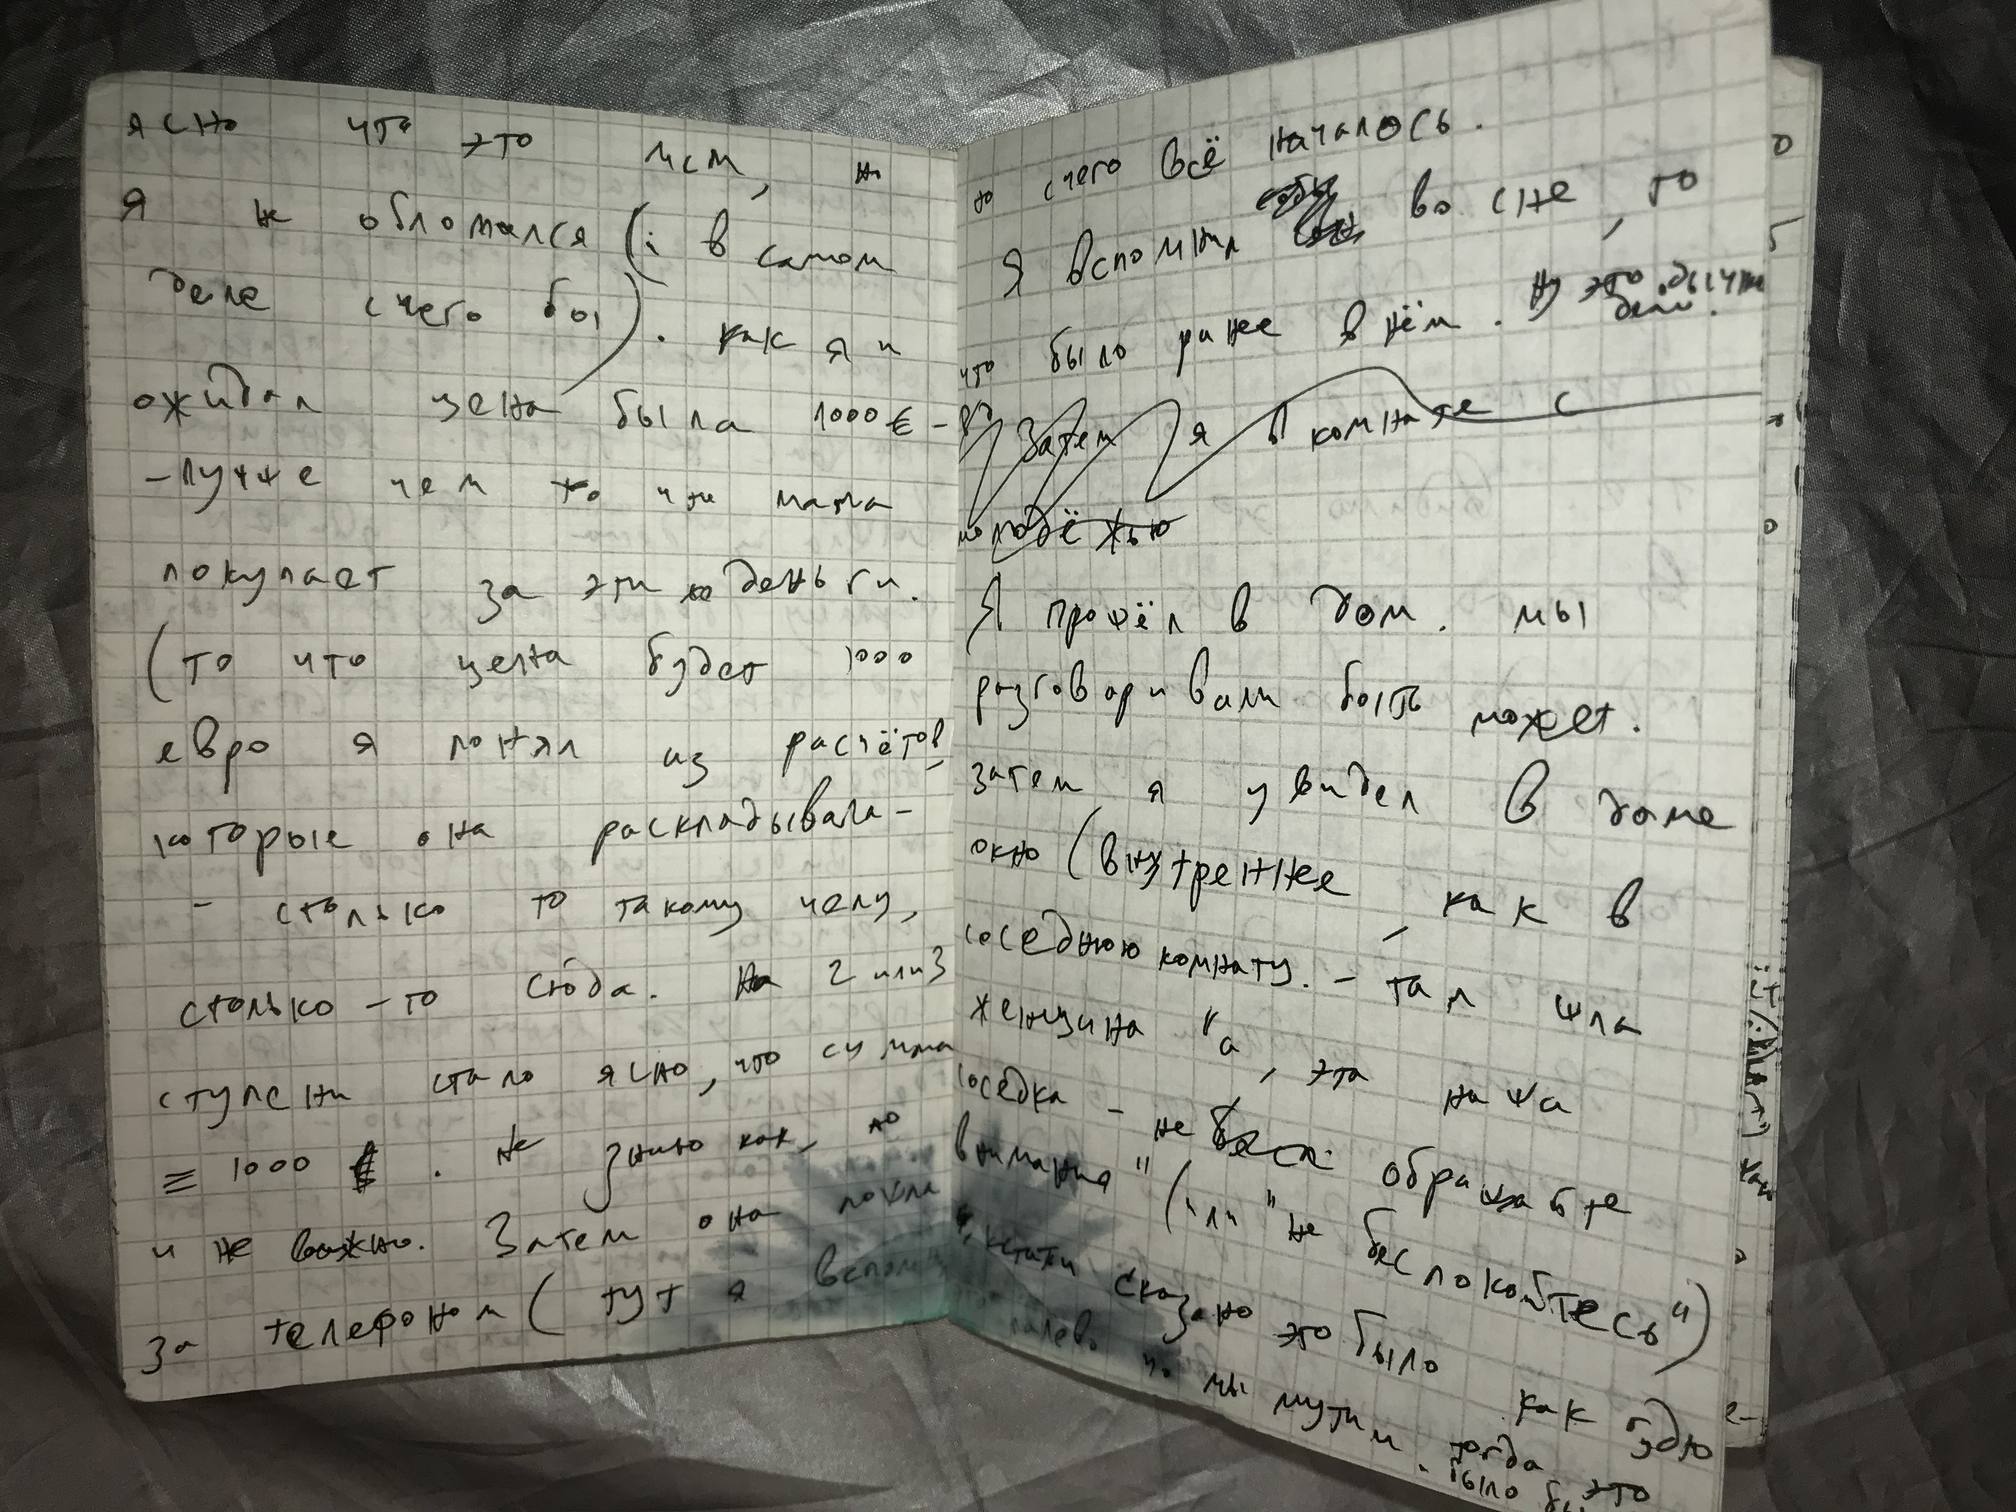 ясно что это мсм, но
я не обломался (: в самом
деле с чего бы). как я и
ожидал цена была 1000 € -
- лучже чем то что мама
покупает за эти деньги.
(то что цена будет 1000
евро я понял из расчётов,
которые она раскладывала -
- столько то такому челу,
столько-то сюда. На 2 или 3
ступени стало ясно, что сумма
≡ 1000 €. не знаю как, но
и не важно. Затем она пошла
за телефоном (тут я вспомн
но с чего всё началось.
Я вспомнил во сне, то
что было ранее в нём. Ну это обычное
дело.
Затем я в комнате с
молодёжью
Я прошёл в дом. мы
разговаривали быть может.
затем я увидел в доме
окно (внутреннее, как в
соседнюю комнату. - там шла
женщина "а, эта наша
соседка - не обращайте
внимания" (или "не беспокойтесь")
кстати сказано это было как будто
палево что мы мутим. тогда это
было бы